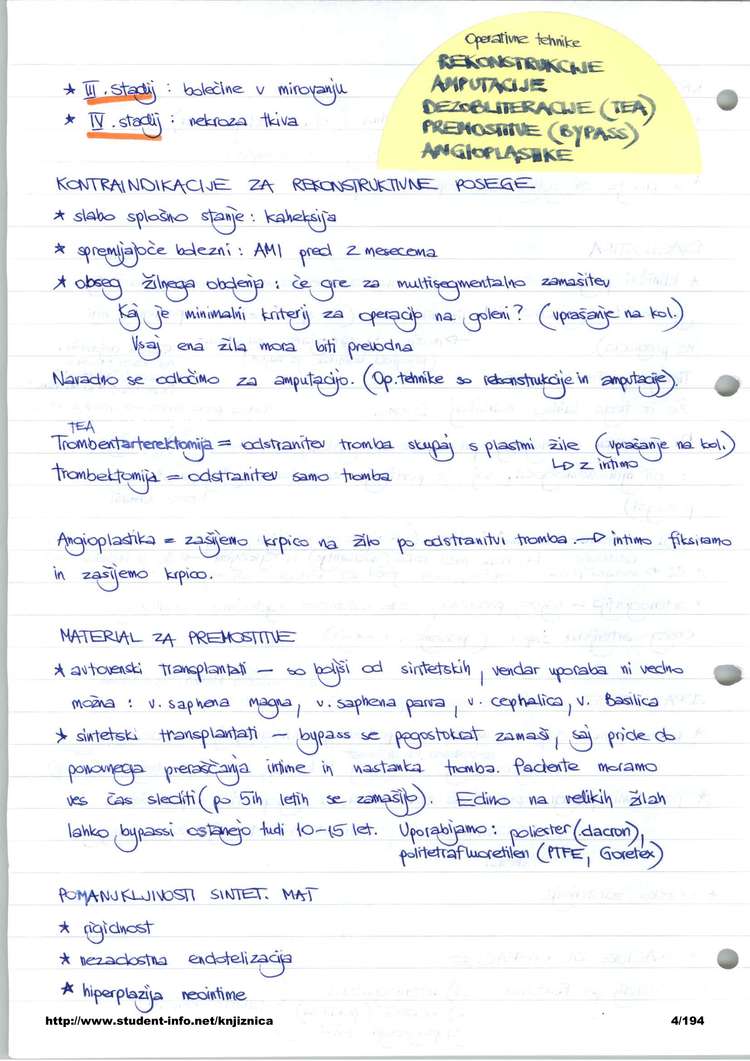 Operativne tehnike
REKONSTRUKCIJE
AMPUTACIJE
DEZOBLITERACIJE (TEA)
PREMOSTITVE (BYPASS)
ANGIOPLASTIKE
* III. stadij : bolečine v mirovanju
* IV. stadij : nekroza tkiva
KONTRAINDIKACIJE ZA REKONSTRUKTIVNE POSEGE
* slabo splošno stanje : kaheksija
* spremljajoče bolezni : AMI pred 2 mesecema
* obseg žilnega obolenja : če gre za multisegmentalno zamašitev
Kaj je minimalni kriterij za operacijo na goleni? (vprašanje na kol.)
Vsaj ena žila mora biti prevodna
Navadno se odločimo za amputacijo. (Op. tehnike so rekonstrukcije in amputacije).
TEA
Trombentarterektomija = odstranitev tromba skupaj s plastmi žile (vprašanje na kol.)
↳ z intimo
trombektomija = odstranitev samo tromba
Angioplastika = zašijemo krpico na žilo po odstranitvi tromba. → intimo fiksiramo
in zašijemo krpico.
MATERIAL ZA PREMOSTITVE
* avtovenski transplantati – so boljši od sintetskih, vendar uporaba ni vedno
možna : v. saphena magna, v. saphena parva, v. cephalica, v. Basilica
* sintetski transplantati – bypass se pogostokrat zamaši, saj pride do
ponovnega preraščanja intime in nastanka tromba. Paciente moramo
ves čas slediti (po 5ih letih se zamašijo). Edino na velikih žilah
lahko bypassi ostanejo tudi 10-15 let. Uporabljamo : poliester (dacron),
politetrafluoretilen (PTFE, Goretex)
POMANJKLJIVOSTI SINTET. MAT
* rigidnost
* nezadostna endotelizacija
* hiperplazija neointime
http://www.student-info.net/knjiznica
4/194